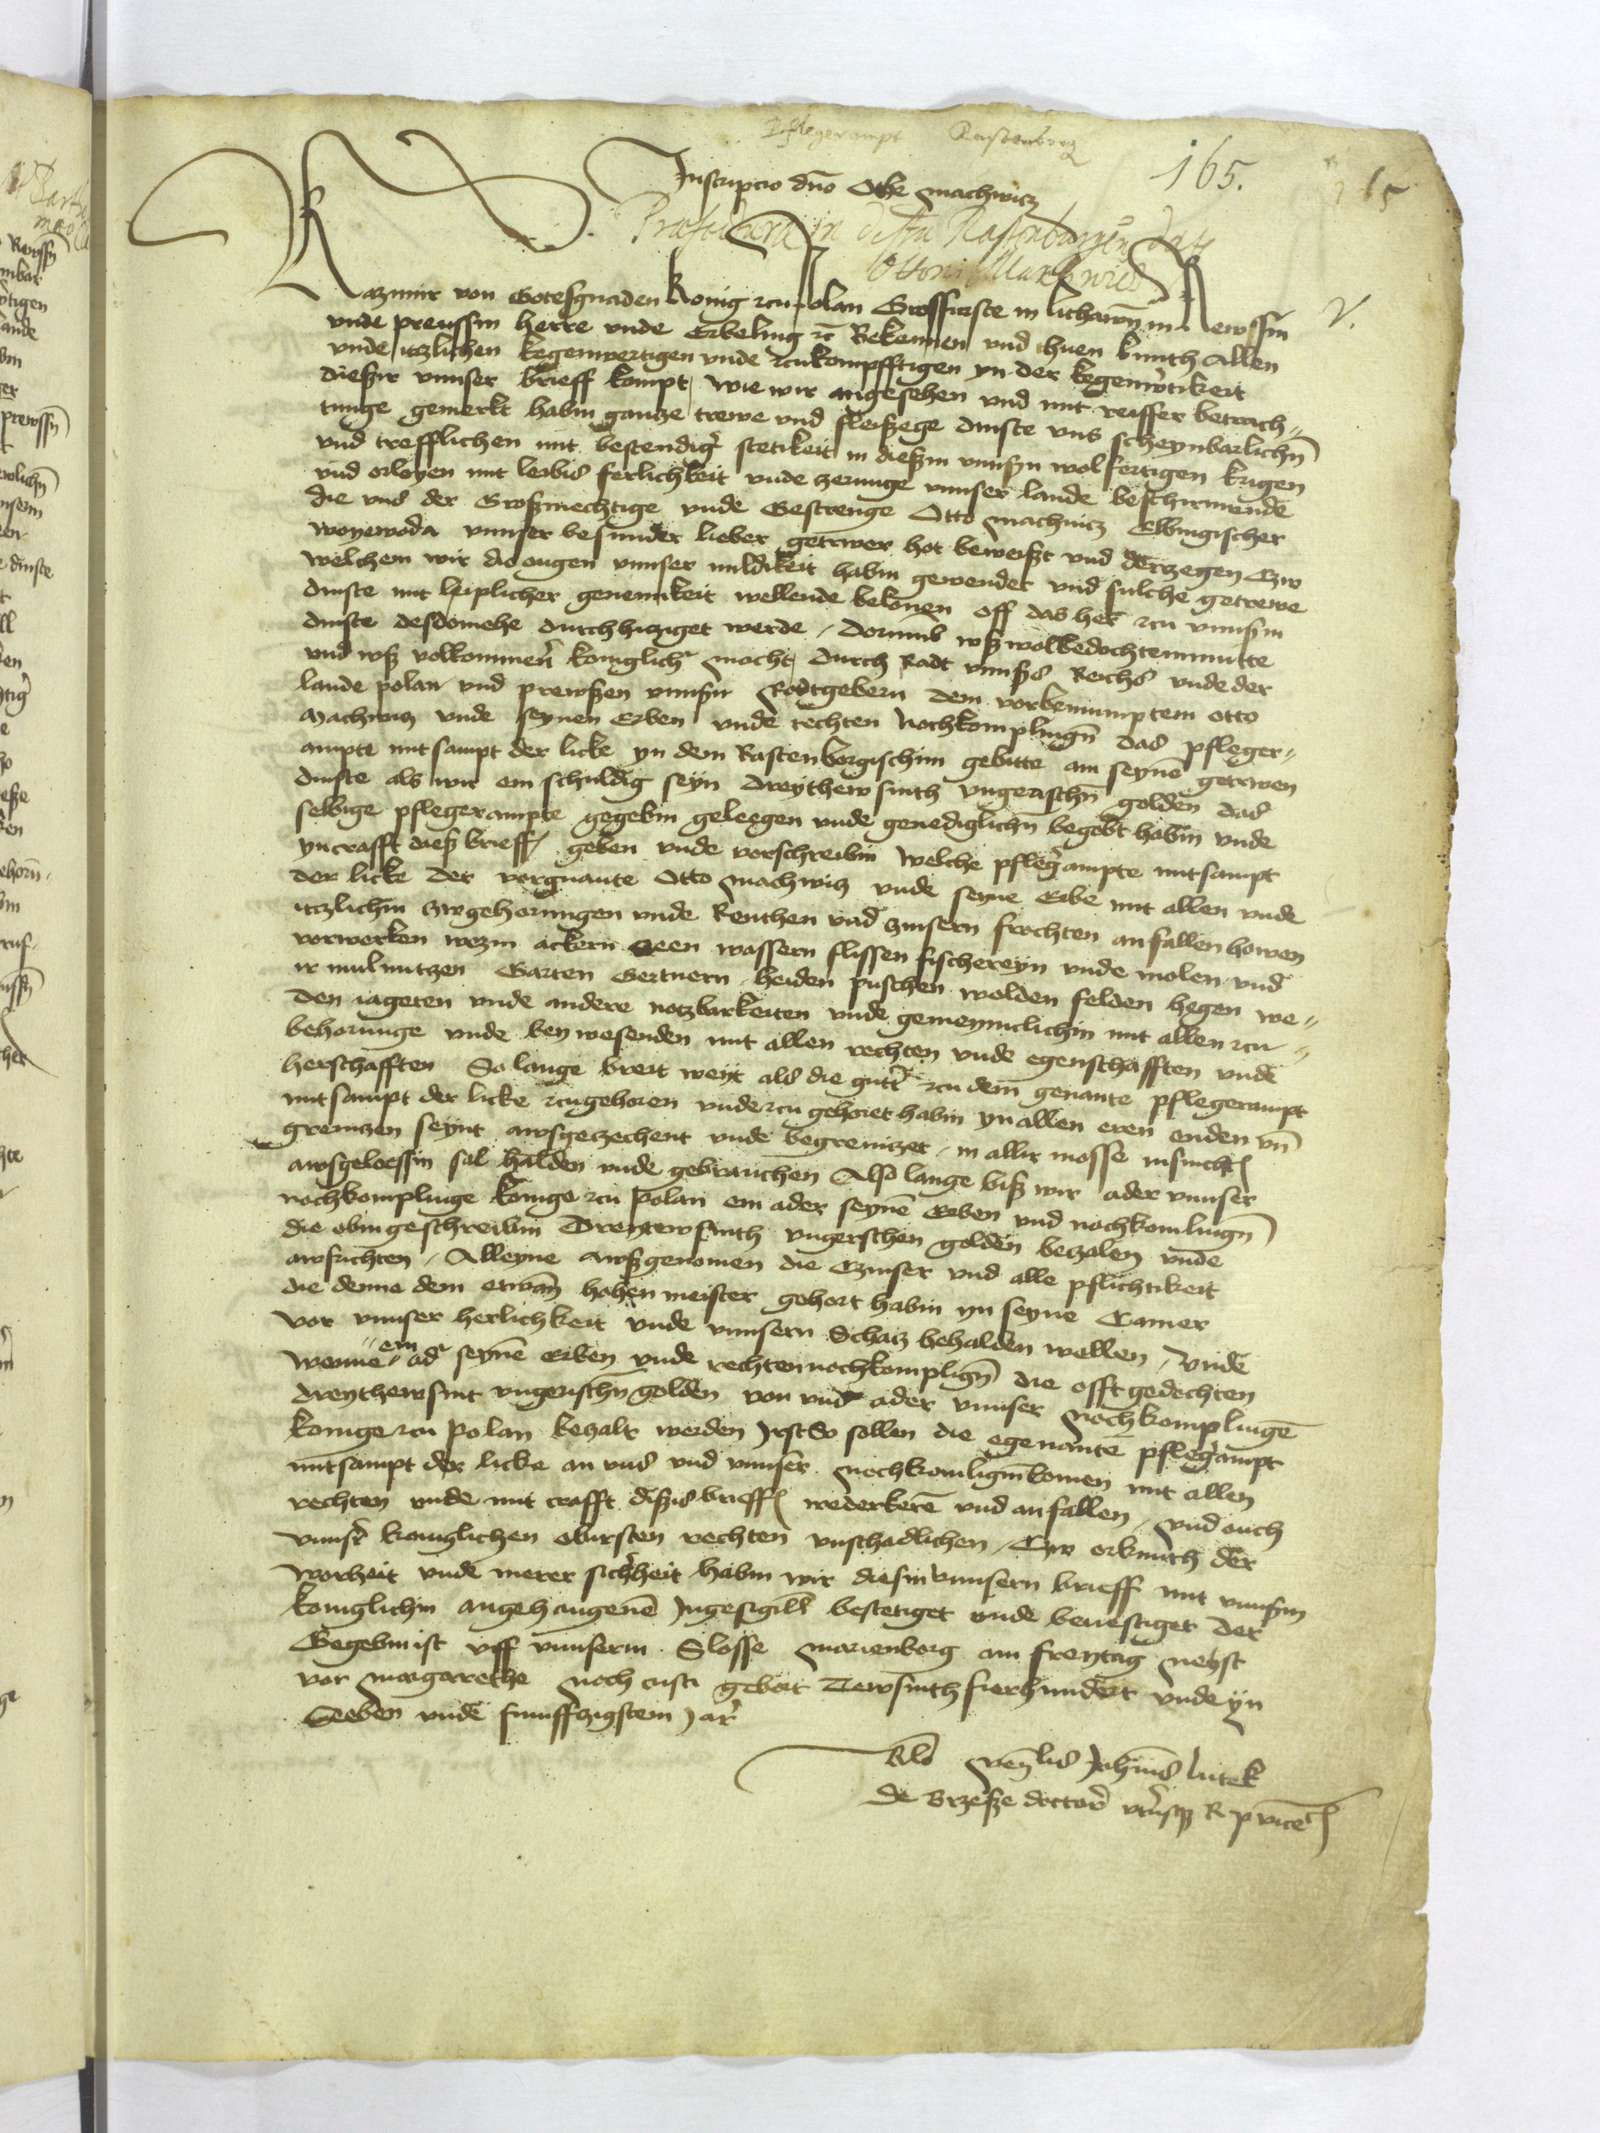 Pflegerampt Rastenborg
165.
Inscripcio dno Otte Machwicz
Praefectura in distri Rastenburgen data
Ottoni Machwicz
Kazimir von Gotesgnaden Konig zcu Polan Grosfurste in Lithawn in Rewssin
vnde prewssin herre vnde Erbeling etc Bekennen vnd thuen kunth Allen
vnde itzlichen kegenwertigen vnde zcukompfftigen yn der kegenwertikeit
dieszir vnnser brieff kompt, wie wir angesehen vnd mit reiffer betrach-
tunge gemerkt habin gantze trewe vnd fleiszege dinste vns scheynbarlichn
vnd trefflichen mit bestendiger stetikeit in dieszin vnnszn wolfertigen krigen
vnd orloyen mit leibis ferlichkeit vnde zerunge vnnser lande beschirmende
die vns der Groszmechtige vnde Gestrenge Otto Machwicz Elbingischer
Woyewoda vnnser besunder lieber getrwer hot beweiszt vnd derzegen Czw
welchem wir die ougen vnnser mildikeit habin gewendet vnd sulche getrewe
dinste mit leiplicher genemkeit wellende belonen off das her zcu vnnszn
dinste desdomehe durchhitziget werde, Dorumb wsz wolbedochtemmutte
vnd wsz volkommener koniglicher macht, durch Radt vnnszs Reichs vnde der
lande polan vnd prewszen vnnszir Rodtgebern dem vorbenumptem Otto
Machwicz vnde seynen Erben vnde rechten Nochkomplingn das pfleger-
ampte mitsampt der licke yn dem Rastenborgischin gebitte am seyne getrwen
dinste als wir em schuldig seyn dreythewsinth vngerischn golden das
selbige pflegerampte gegebin gelegen vnde genediglichn begobt habin vnde
yn crafft diesz brieffs geben vnde vorschreibin welche pflegerampte mitsampt
der licke der vorgnante Otto Machwitz vnde seyne Erbe mit allen vnde
itzlichin zwgehorungen vnde Renthen vnd zinsern frochten anfallen howen
vorwerken wezin ackern Seen wassern flissen fischereyn vnde molen vnd
ir mulnutzen Garten Gertnern heiden puschen welden felden hegen we-
den iageten vnde andere notzbarkeiten vnde gemeyniclichin mit allen zcu-
behorunge vnde bey wesenden mit allen rechten vnde egenschafften vnde
herschafften So lange breit weyt als die gutter zcu dem genante pflegerampt
mitsampt der licke zcugehoren vnde zcu gehoret habin yn allen eren enden vn
grenitzen seynt awsgeczechent vnde begrenitzet, in allir mosse
awsgeloessin sal halden vnde gebrauchen Also lange bisz wir ader vnnser
nochkomplinge konige zcu Polan em ader seyne Erben vnd nochkomlingn
die obingeschreibin Dreytewsinth vngerschen golden bezalen vnde
awsrichten, Alleyne awszgenomen die Czinser vnd alle pflichtikeit
die denne dem etwan hohen meister gehort habin yn seyne Camer
vor vnnser herlichkeit vnde vnnsern Schatz behalden wellen, Vnde
wenne em ader seyne Erben vnde rechten nochkomplign die offtgedochten
dreythewsint vngerischn golden von vns ader vnnser Nochkomplinge
konige zcu Polan bezalt werden irst So sollen die egenante pflegerampt
mitsampt der licke an vns vnd vnnser Nochkomlign komen mit allen
rechten vnde mit crafft diszis brieffs wederkere vnd anfallen, vnd ouch
vnnser koniglichen obirsten rechten vnschadlichen, Czw orkunth der
worheit vnde merer sicherheit habin wir diesin vnnsern brieff mit vnnszm
koniglichin angehangene Ingesigill bestetiget vnde beuestiget Der
Gegebin ist vff vnnserm Slosse Marienborg am freytag Nehst
vor Margarethe Noch cristi gebort Tewsinth fierhundert vnde yn
Seben vnde funffzigstem Jar
Rlo Venlis Johannis Lutek
de Brzesze doctoris vtriusq R p vice